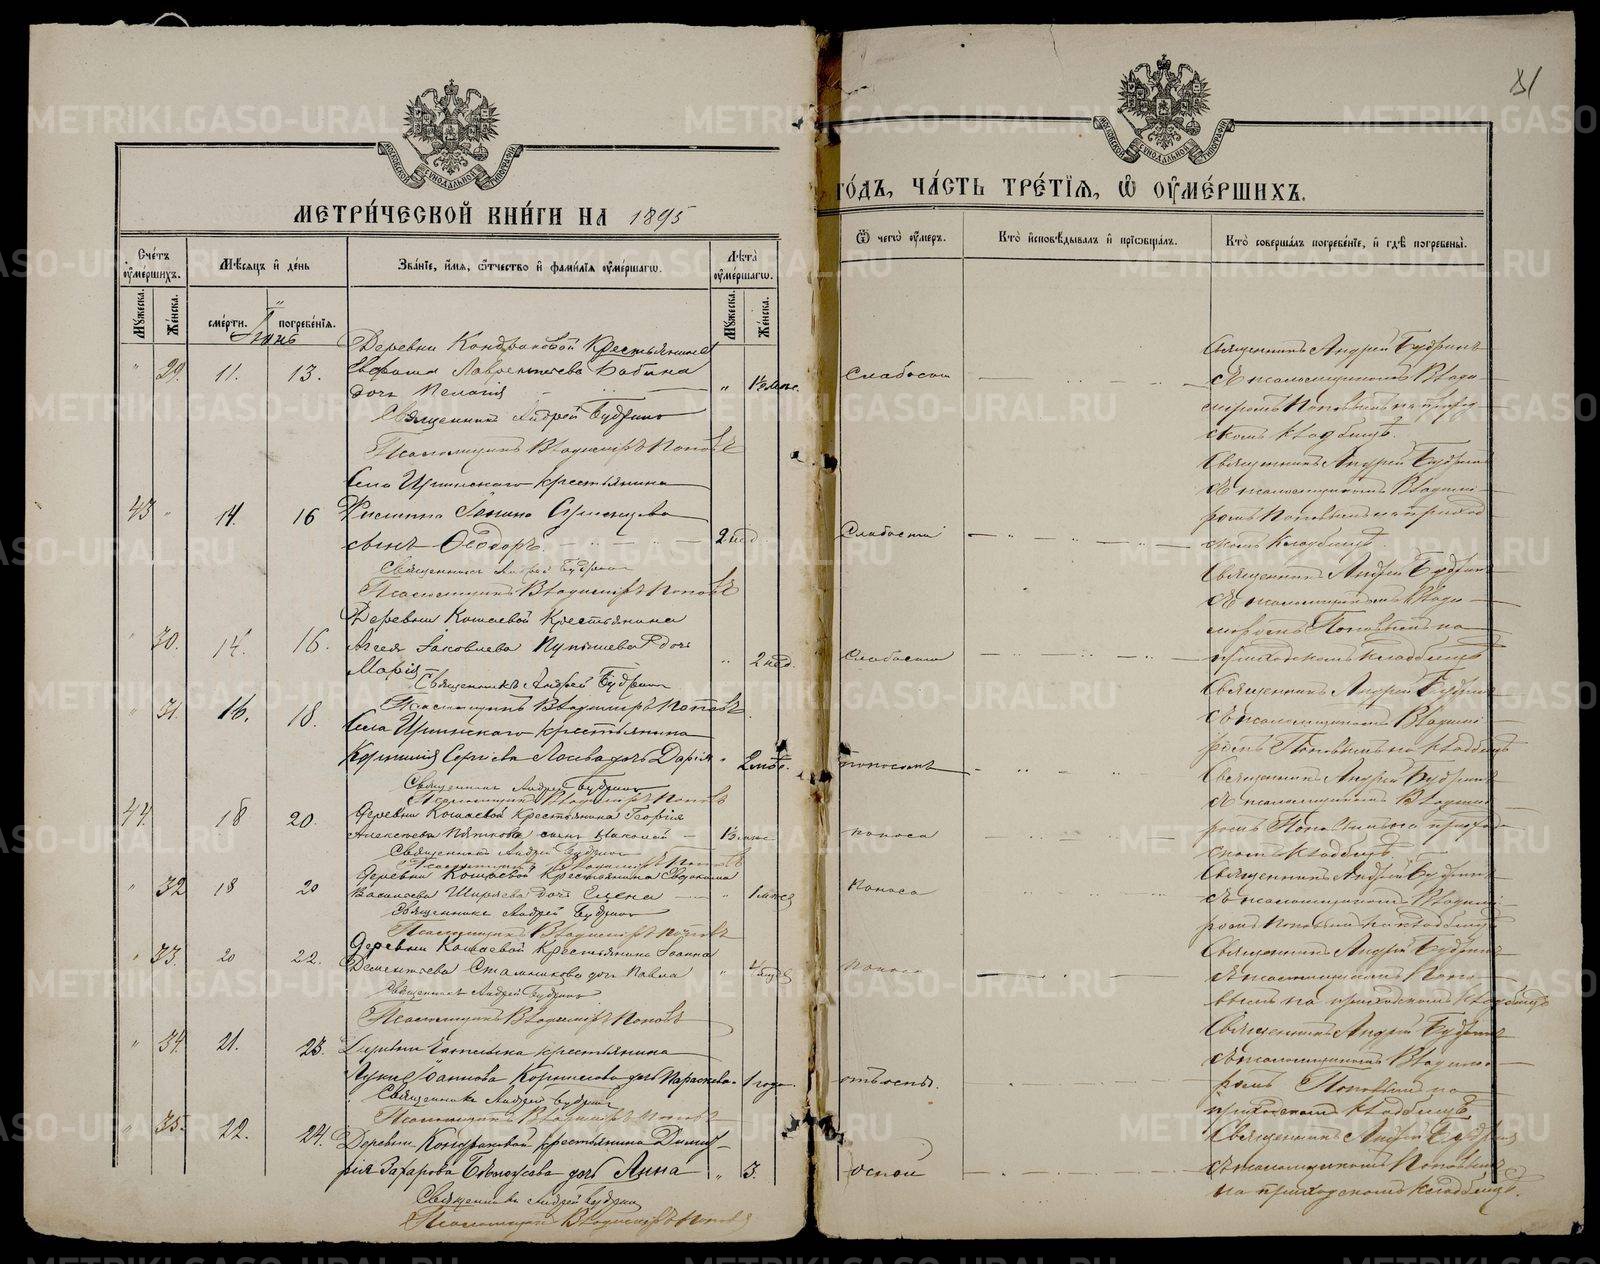 МЕТРИ́ЧЕСКОЙ КНИ́ГИ НА 1895
ГО́ДЪ, ЧА́СТЬ ТРЕ́ТІѦ, Ѡ҆ ОУ҆МЕ́РШИХЪ.
МОСКОВСКОЙ СѴНОДАЛЬНОЙ ТИПОГРАФІИ
МОСКОВСКОЙ СѴНОДАЛЬНОЙ ТИПОГРАФІИ
81
Сче́тъ оу҆ме́ршихъ.
Мꙋ́жеска.
Же́нска.
Мѣ́сѧцъ и҆ де́нь
сме́рти.
погребе́нїѧ.
Зва́нїе, и҆́мѧ, ѻ҆́тчество и҆ фами́лїѧ оу҆ме́ршагѡ.
Лѣ́та оу҆ме́ршагѡ.
Мꙋ́жеска.
Же́нска.
Ѿ чегѡ̀ оу҆́меръ.
Кто̀ и҆сповѣ́дывалъ и҆ прїѡбща́лъ.
Кто̀ соверша́лъ погребе́нїе, и҆ гдѣ̀ погребены̀.
" 29. 11. 13.
Деревни Кондраковой Крестьянина
Лаврентьева Бабина
дочь Пелагія
Священникъ Андрей Будринъ
Псаломщикъ Владиміръ Поповъ
Слабости
Священникъ Андрей Будринъ
съ псаломщикомъ Влади-
міромъ Поповымъ на приход-
скомъ кладбищѣ.
43 " 14. 16
Села крестьянина
сынъ Ѳеодоръ
2 нед.
Священникъ Андрей Будринъ
Псаломщикъ Владиміръ Поповъ
Слабости
Священникъ Андрей Будринъ
съ псаломщикомъ Владимі-
ромъ Поповымъ на приход-
скомъ кладбищѣ
" 30. 14. 16.
Деревни Кошаевой Крестьянина
Яковлева дочь
Марія
" 2 нед.
Священникъ Андрей Будринъ
Псаломщикъ Владиміръ Поповъ
Слабости
Священникъ Андрей Будринъ
съ псаломщикомъ Влади-
міромъ Поповымъ на
приходскомъ кладбищѣ
" 31. 16. 18.
Села крестьянина
Корнилія Сергіева Лосева дочь Дарія
" 2 мѣс.
Священникъ Андрей Будринъ
Псаломщикъ Владиміръ Поповъ
поносомъ
Священникъ Андрей Будринъ
съ псаломщикомъ Владимі-
ромъ Поповымъ на кладбищѣ
44. 18 20.
Деревни Кошаевой Крестьянина Георгія
Алексѣева Пяткова сынъ Николай
Священникъ Андрей Будринъ
Псаломщикъ Владиміръ Поповъ
поноса
Священникъ Андрей Будринъ
съ псаломщикомъ Владимі-
ромъ Поповымъ на приход-
скомъ кладбищѣ
" 32 18 20
Деревни Кошаевой Крестьянина Евдокима
Васильева Ширяева дочь Елена
" 1 мѣс.
Священникъ Андрей Будринъ
Псаломщикъ Владиміръ Поповъ
Поноса
Священникъ Андрей Будринъ
съ псаломщикомъ Владимі-
ромъ Поповымъ на кладбищѣ
" 33. 20 22.
Деревни Кошаевой Крестьянина Іоанна
Дементьева Стальникова дочь Павла
Священникъ Андрей Будринъ
Псаломщикъ Владиміръ Поповъ
Поноса
Священникъ Андрей Будринъ
съ псаломщикомъ Попо-
вымъ на приходскомъ кладбищѣ
" 34. 21. 23.
Деревни крестьянина
Луки Іоаннова Корнилова дочь Параскева
1 года.
Священникъ Андрей Будринъ
Псаломщикъ Владиміръ Поповъ
отъ оспы.
Священникъ Андрей Будринъ
съ псаломщикомъ Владимі-
ромъ Поповымъ на
приходскомъ кладбищѣ.
" 35. 22. 24.
Деревни Кондраковой крестьянина Димит-
рія Захарова Бѣлоусова дочь Анна
" 3.
Священникъ Андрей Будринъ
Псаломщикъ Владиміръ Поповъ
оспой
Священникъ Андрей Будринъ
съ псаломщикомъ Поповымъ
на приходскомъ кладбищѣ.
METRIKI.GASO-URAL.RU